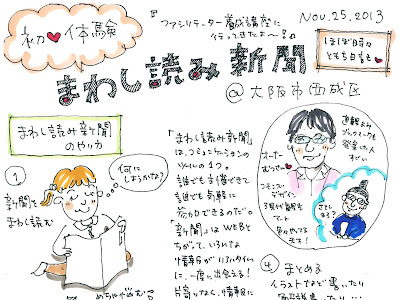 初♥体験
『ファシリテーター養成講座に
行ってきたよ〜!』
Nov.25.2013
ほぼ時々
ともち日記
まわし読み新聞
@大阪市西成区
まわし読み新聞
のやり方
①
新聞を
まわし読む
何に
しようかな?
めちゃ悩む
「まわし読み新聞」
は、コミュニケーションの
ツールの1つ。
誰でも準備できて
誰でも気軽に
参加できるのだ。
「新聞」はWEBと
ちがって、いろんな
情報がリアルタイム
に、一度に出会える!
片寄りなく、情報に
オーナー
むつさん
コモンズ・デザイン
アート
④まとめる
イラストなど書いたり